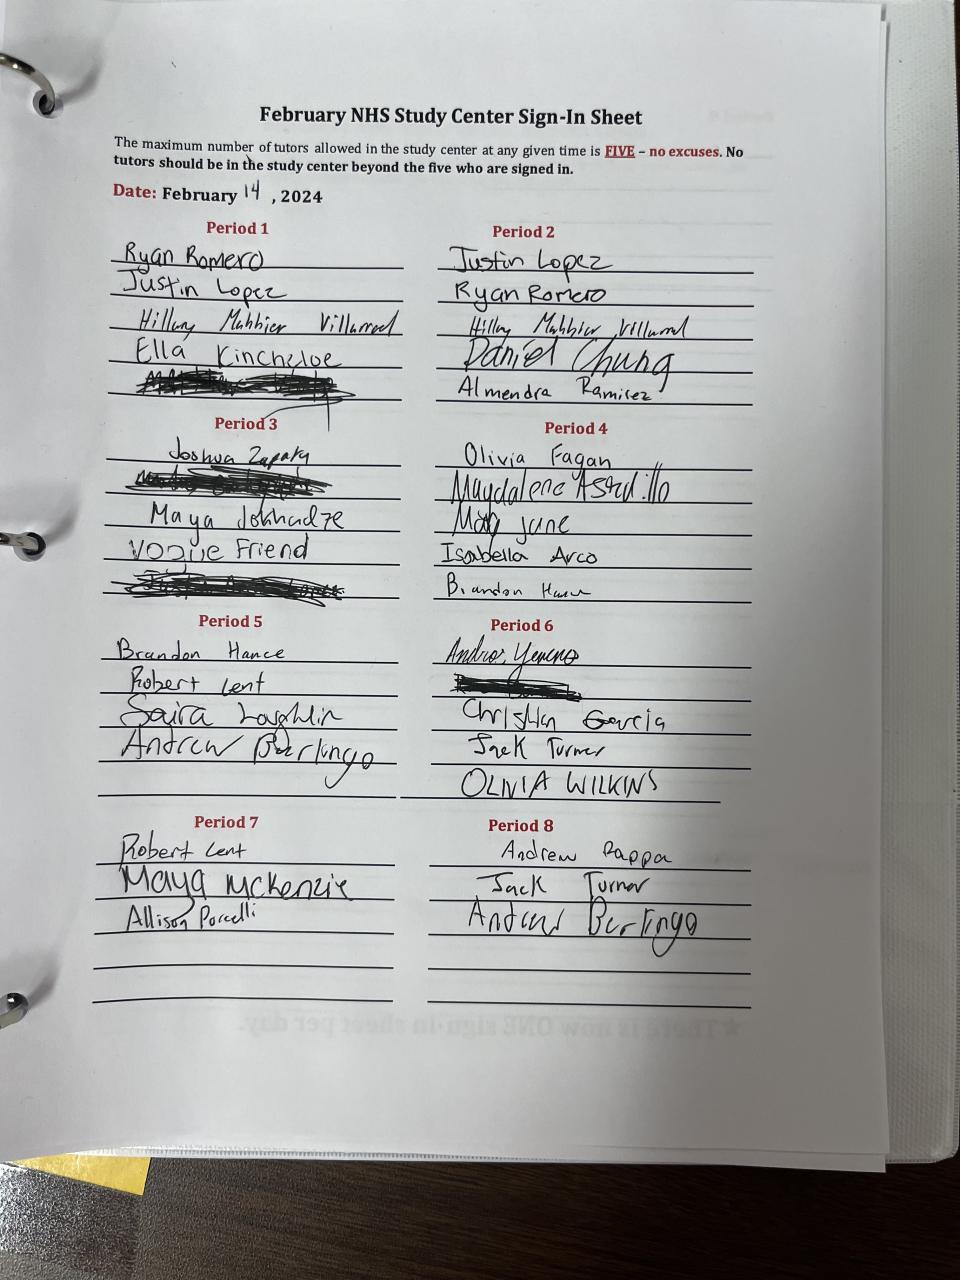 February NHS Study Center Sign-In Sheet
The maximum number of tutors allowed in the study center at any given time is FIVE – no excuses. No
tutors should be in the study center beyond the five who are signed in.
Date: February 14, 2024
Period 1
Ryan Romero
Justin Lopez
Hillary Mahbier Villarreal
Ella Kincheloe
Period 2
Justin Lopez
Ryan Romero
Hillary Mahbier Villarreal
Daniel Chung
Almendra Ramirez
Period 3
Joshua Zapata
Maya Jokhadze
Vogue Friend
Period 4
Olivia Fagan
Magdalene Astudillo
June
Isabella Arco
Brandon Hance
Period 5
Brandon Hance
Robert Lent
Saira Loughlin
Andrew Berlingo
Period 6
Christian Garcia
Jack Turner
OLIVIA WILKINS
Period 7
Robert Lent
Maya McKenzie
Allison Porcelli
Period 8
Andrew Pappa
Jack Turner
Andrew Berlingo
★There is now ONE sign-in sheet per day.